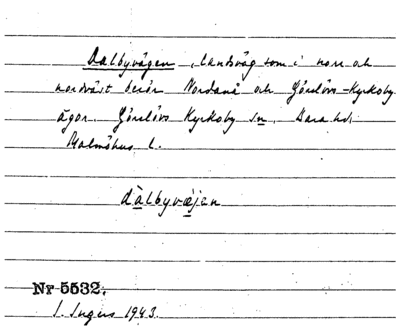 Dalbyvägen, landsväg som i norr och
nordväst berör Nordanå och Görslövs-Kyrkoby
ägor. Görslövs Kyrkoby sn. Bara hd.
Malmöhus l.
dàlbyvæjen
Nr 5532.
I. Ingers 1943.